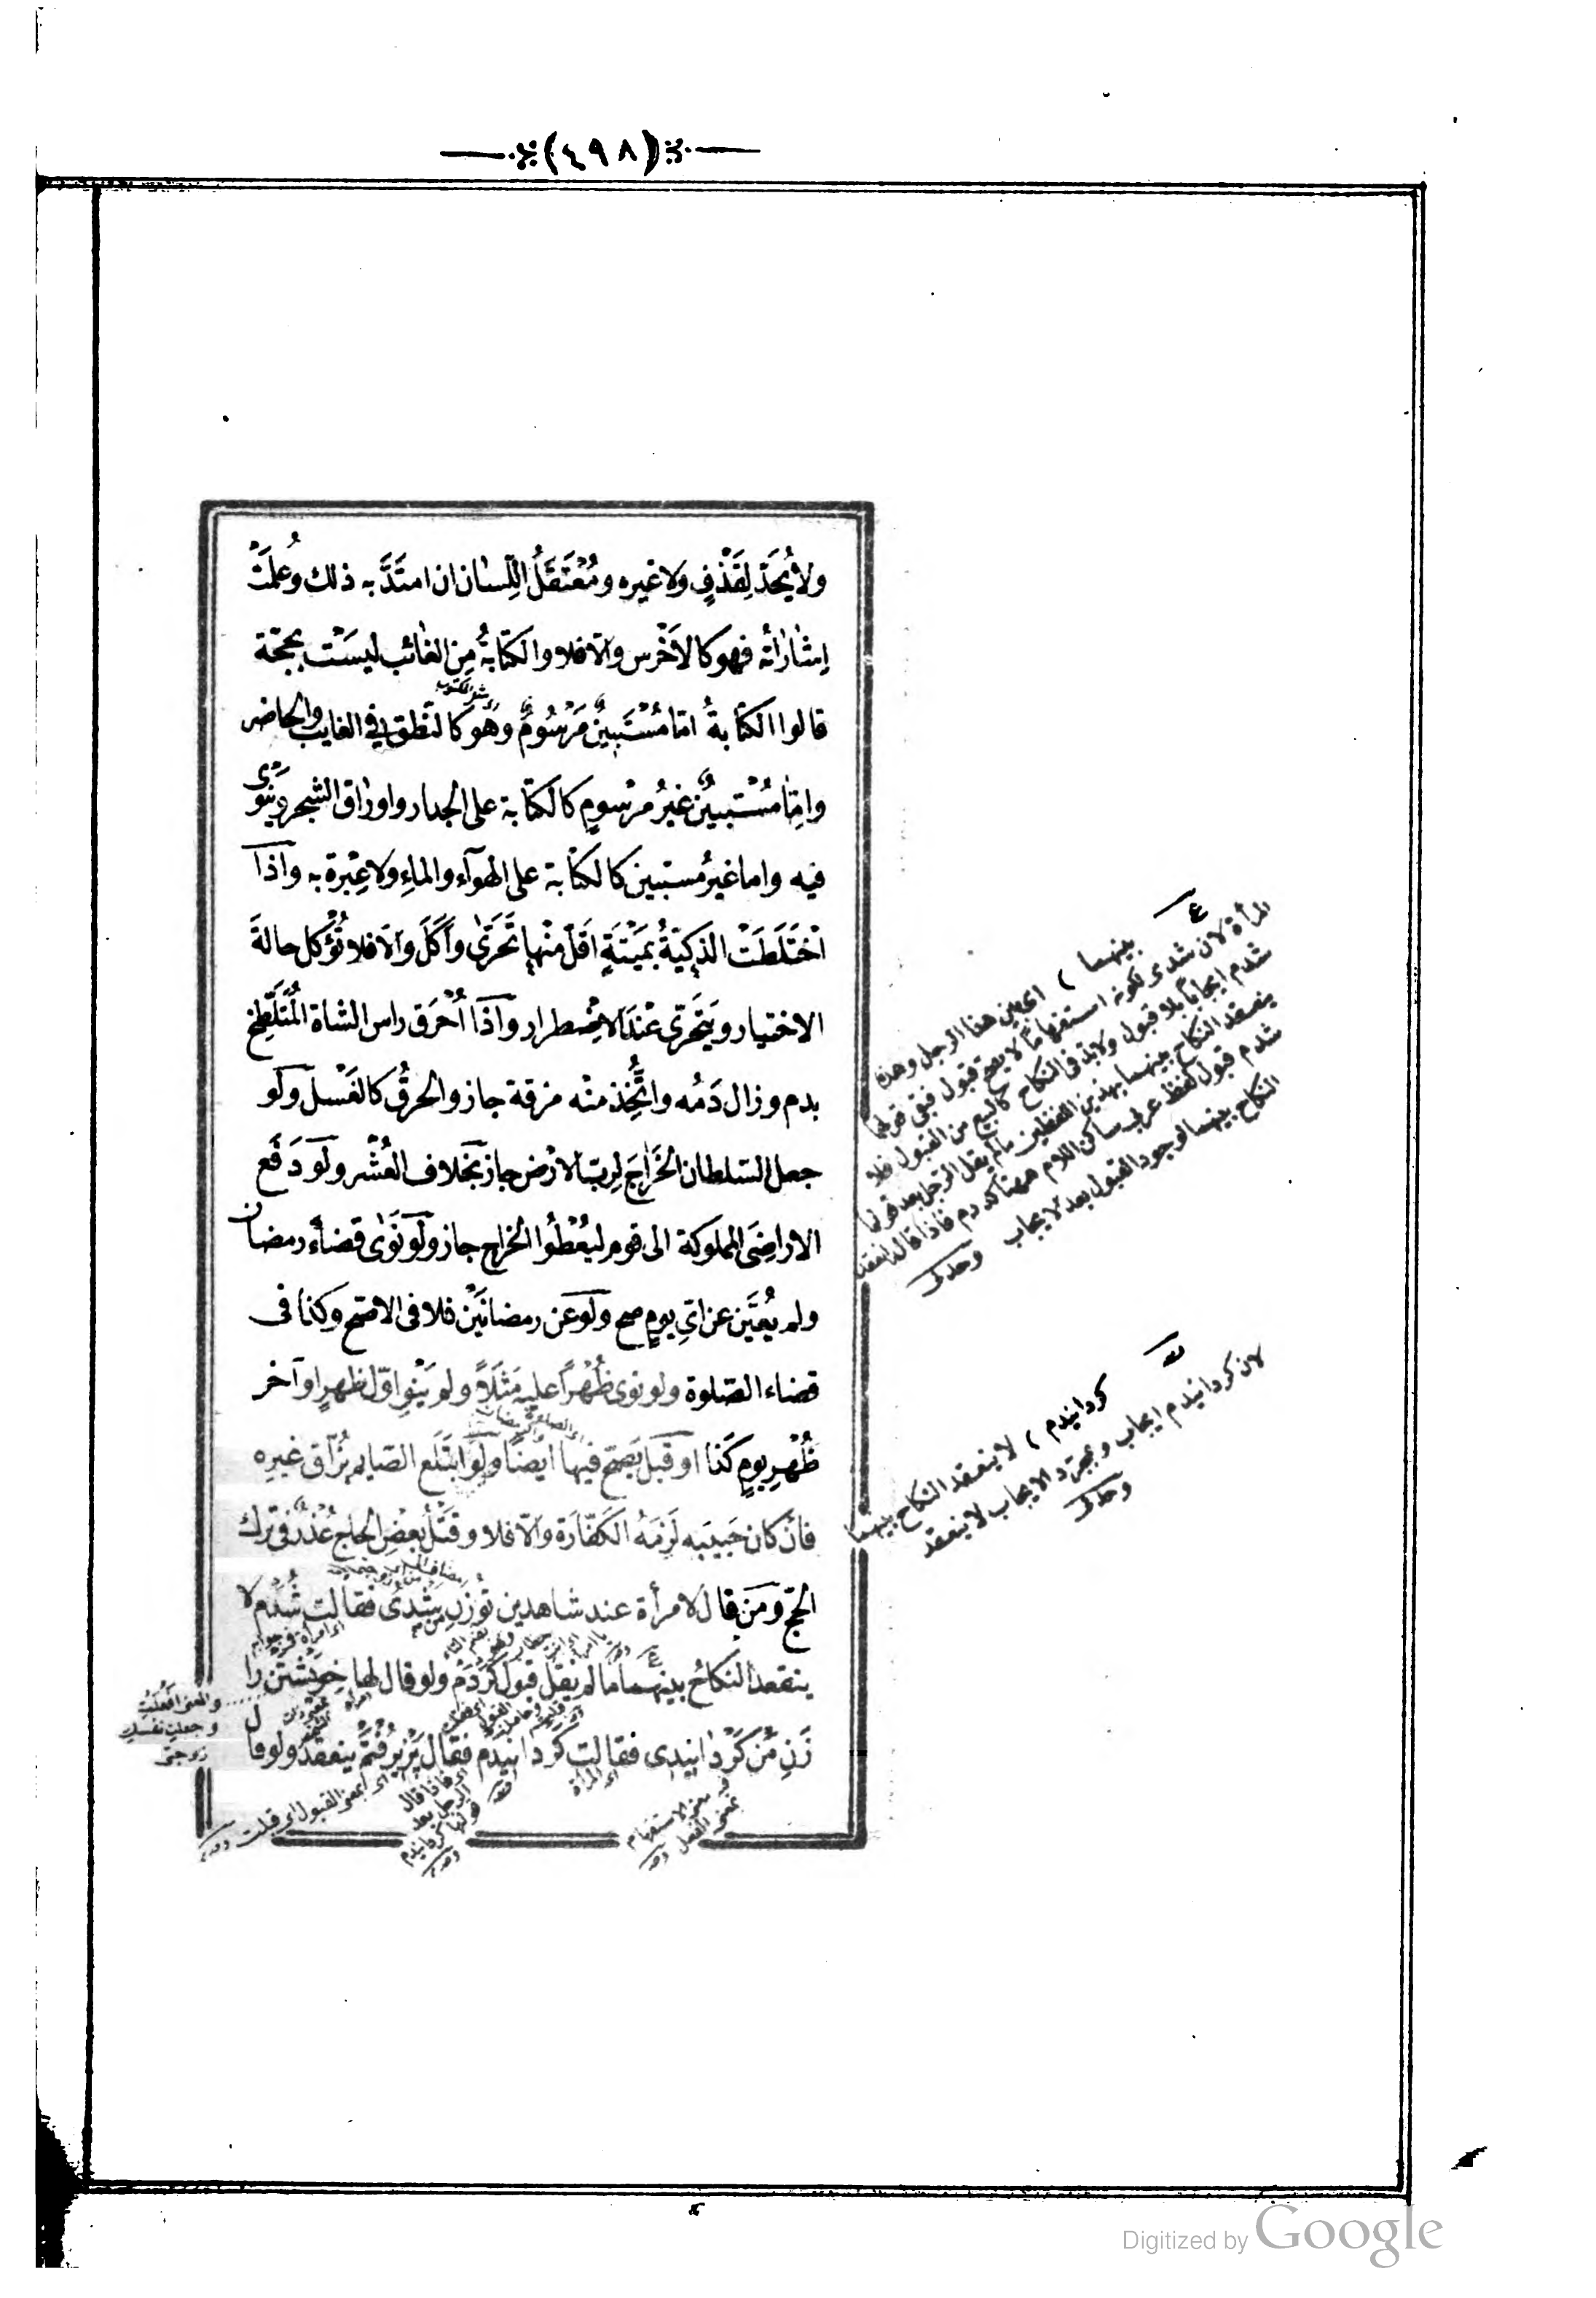 (٤٩٨)
ولا يُحَدّ لِقَذْفٍ ولا غيره ومُعْتَقَلُ اللِّسان ان امتَدَّ به ذلك وعُلمَتْ
إشاراتُه فهو كالاَخْرس والّا فلا والكتابةُ مِن الغائب ليسَتْ بحجّة
قالوا الكتابةُ امّا مُسْتَبينٌ مَرْسُومٌ وهُو كالنّطق في الغايب والحاضر
وامّا مُسْتبينٌ غيرُ مرْسومٍ كالكتابة على الجدار واوراق الشجر ويَنْوى
فيه واما غيرُ مستبين كالكتابة على الهوآء والماءِ ولا عِبْرة به وَاذا
اخْتَلَطَتْ الذكيّةُ بمَيْتَةٍ اقَلّ منْها تَحَرّى وَاَكَلَ والّا فلا تُؤكل حالةَ
الاختيار ويَتَحَرّى عنْدَ الاِضطرار وَاذا اُحْرَق راس الشاة المُتَلَطِّخ
بدم وزال دَمُه واتُّخِذ منْه مرقة جاز والحرقُ كالغَسْل وَلَو
جعل السّلطان الخَراجَ لِربّ الاَرْض جاز بخلاف العُشْر ولَو دَفَع
الاراضِىَ المملوكة الى قوم ليُعْطُوا الخراج جاز ولَو نَوَى قضاءَ رمضان
ولم يُعيّن عن اىّ يومٍ صح ولَو عَن رمضانَيْن فلا فى الاصحّ وكذا فى
قضاء الصّلوة ولو نوى ظُهْراً عليه مَثَلاً ولو يَنْوِ اوّل ظهرٍ او آخر
ظُهْرِ يومٍ كَذا او قبَل يَصحّ فيها ايضًا ولَو ابتَلَع الصّايم بُزاق غيرِه
فان كان حَبيبَه لَزِمَهُ الكَفّارَة والّا فلا وقَتْلُ بعضِ الحاج عُذْرٌ فى ترك
الحجّ ومَن قال لامرأة عند شاهدين تُو زَنِ مَنْ شُدى فقالت شُدَم لا
ينقعد النكاحُ بينَهما ما لم يقل قبول كَرْدَمْ ولو قال لها خوِيْشتن را
زَنِ مَن كَرْدانيدى فقالت كرْدانيدَم فقال پَزيرُفْتَم ينعقد ولو قال
٤
بينهما ) اى بين هذا الرجل وهذه
المرأة لان شدى لكونه استفهاماً لا يصح قبول فبقى قولها
شدم ايجاباً بلا قبول ولا بد فى النكاح كالبيع من القبول فلا
ينعقد النكاح بينهما بهذين اللفظين مالم يقل الرجل بعد قولها
شدم قبول لفظ عربى ساكن اللام ههنا كردم فاذا قاله انعقد
النكاح بينهما لوجود القبول بعد الايجاب وحدى
كردانيدم ) لا ينعقد النكاح بينهما
لان كردانيدم ايجاب وبمجرد الايجاب لا ينعقد
وحدى
والمعنى افعلتِ
وجعلتِ نفسكِ
زوجتى
اى المرأة
اى فاذا قال
الرجل بعد
قولها كردانيدم
اى بمعنى القبول اى قبلت
Digitized by Google